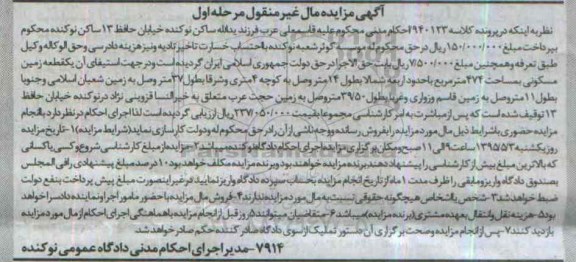 آگهی مزایده مال غیر منقول مرحله اول
نظر به اینکه در پرونده کلاسه ۹۴۰۱۲۳ احکام مدنی محکوم علیه قاسمعلی عرب فرزند یدالله ساکن نوکنده خیابان حافظ ۱۳ ساکن نوکنده محکوم
به پرداخت مبلغ ۱۵۰/۰۰۰/۰۰۰ ریال در حق محکوم له موسسه کوثر شعبه نوکنده با احتساب خسارت تاخیر تادیه و نیز هزینه دادرسی و حق الوکاله وکیل
طبق تعرفه و همچنین مبلغ ۷/۵۰۰/۰۰۰ ریال بابت حق الاجرا در حق دولت جمهوری اسلامی ایران گردیده است و در جهت استیفای آن یک قطعه زمین
مسکونی به مساحت ۴۷۴ متر مربع با حدود اربعه شمالا بطول ۱۴ متر وصل به کوچه ۴ متری و شرقا بطول ۳۷ متر وصل به زمین شعبان اسلامی و جنوبا
بطول ۱۱ متر وصل به زمین قاسم وزواری و غربا بطول ۳۹/۵۰ متر وصل به زمین حجت عرب متعلق به خیرالنسا قزوینی نژاد در نوکنده خیابان حافظ
۱۳ توقیف شده است که پس از مباشرت به امر کارشناسی مجموعا بقیمت ۲۳۷/۰۵۰/۰۰۰ ریال ارزیابی گردیده است لذا اجرای احکام در نظر دارد با انجام
مزایده حضوری با شرایط ذیل مال مورد مزایده را بفروش رسانده و وجه ناشی از آن را در حق محکوم له و دولت کارسازی نماید (شرایط مزایده) ۱- تاریخ مزایده
روز یکشنبه ۱۳۹۵/۵/۳ ساعت ۹ الی ۱۱ صبح و مکان برگزاری مزایده اجرای احکام دادگاه نوکنده میباشد ۲- مزایده از مبلغ کارشناسی شروع و کسی یا کسانی
که بالاترین مبلغ بیش از کارشناسی را پیشنهاد دهند برنده مزایده خواهند بود و برنده مزایده مکلف خواهد بود ۱۰ درصد مبلغ پیشنهادی را فی المجلس
بصندوق دادگاه واریز و مابقی را ظرف مدت ۱ ماه از تاریخ انجام مزایده بحساب سپرده دادگاه واریز نمایید در غیر اینصورت مبلغ پیش پرداخت بنفع دولت
ضبط خواهد شد ۳- شخص یا اشخاص هیچگونه حقوقی نسبت به مال مورد مزایده ندارند ۴- فروش مال مزایده با حضور مامور اجرا و نماینده دادسرا خواهد
بود ۵- هزینه نقل و انتقال به عهده مشتری (برنده مزایده) میباشد ۶- متقاضیان میتوانند ۵ روز قبل از انجام مزایده با هماهنگی اجرای احکام از مال مورد مزایده
بازدید کنند ۷- پس از انجام مزایده و صحت برگزاری آن دستور تملیک از سوی دادگاه صادر کننده حکم صادر خواهد شد.
۷۹۱۴- مدیر اجرای احکام مدنی دادگاه عمومی نوکنده